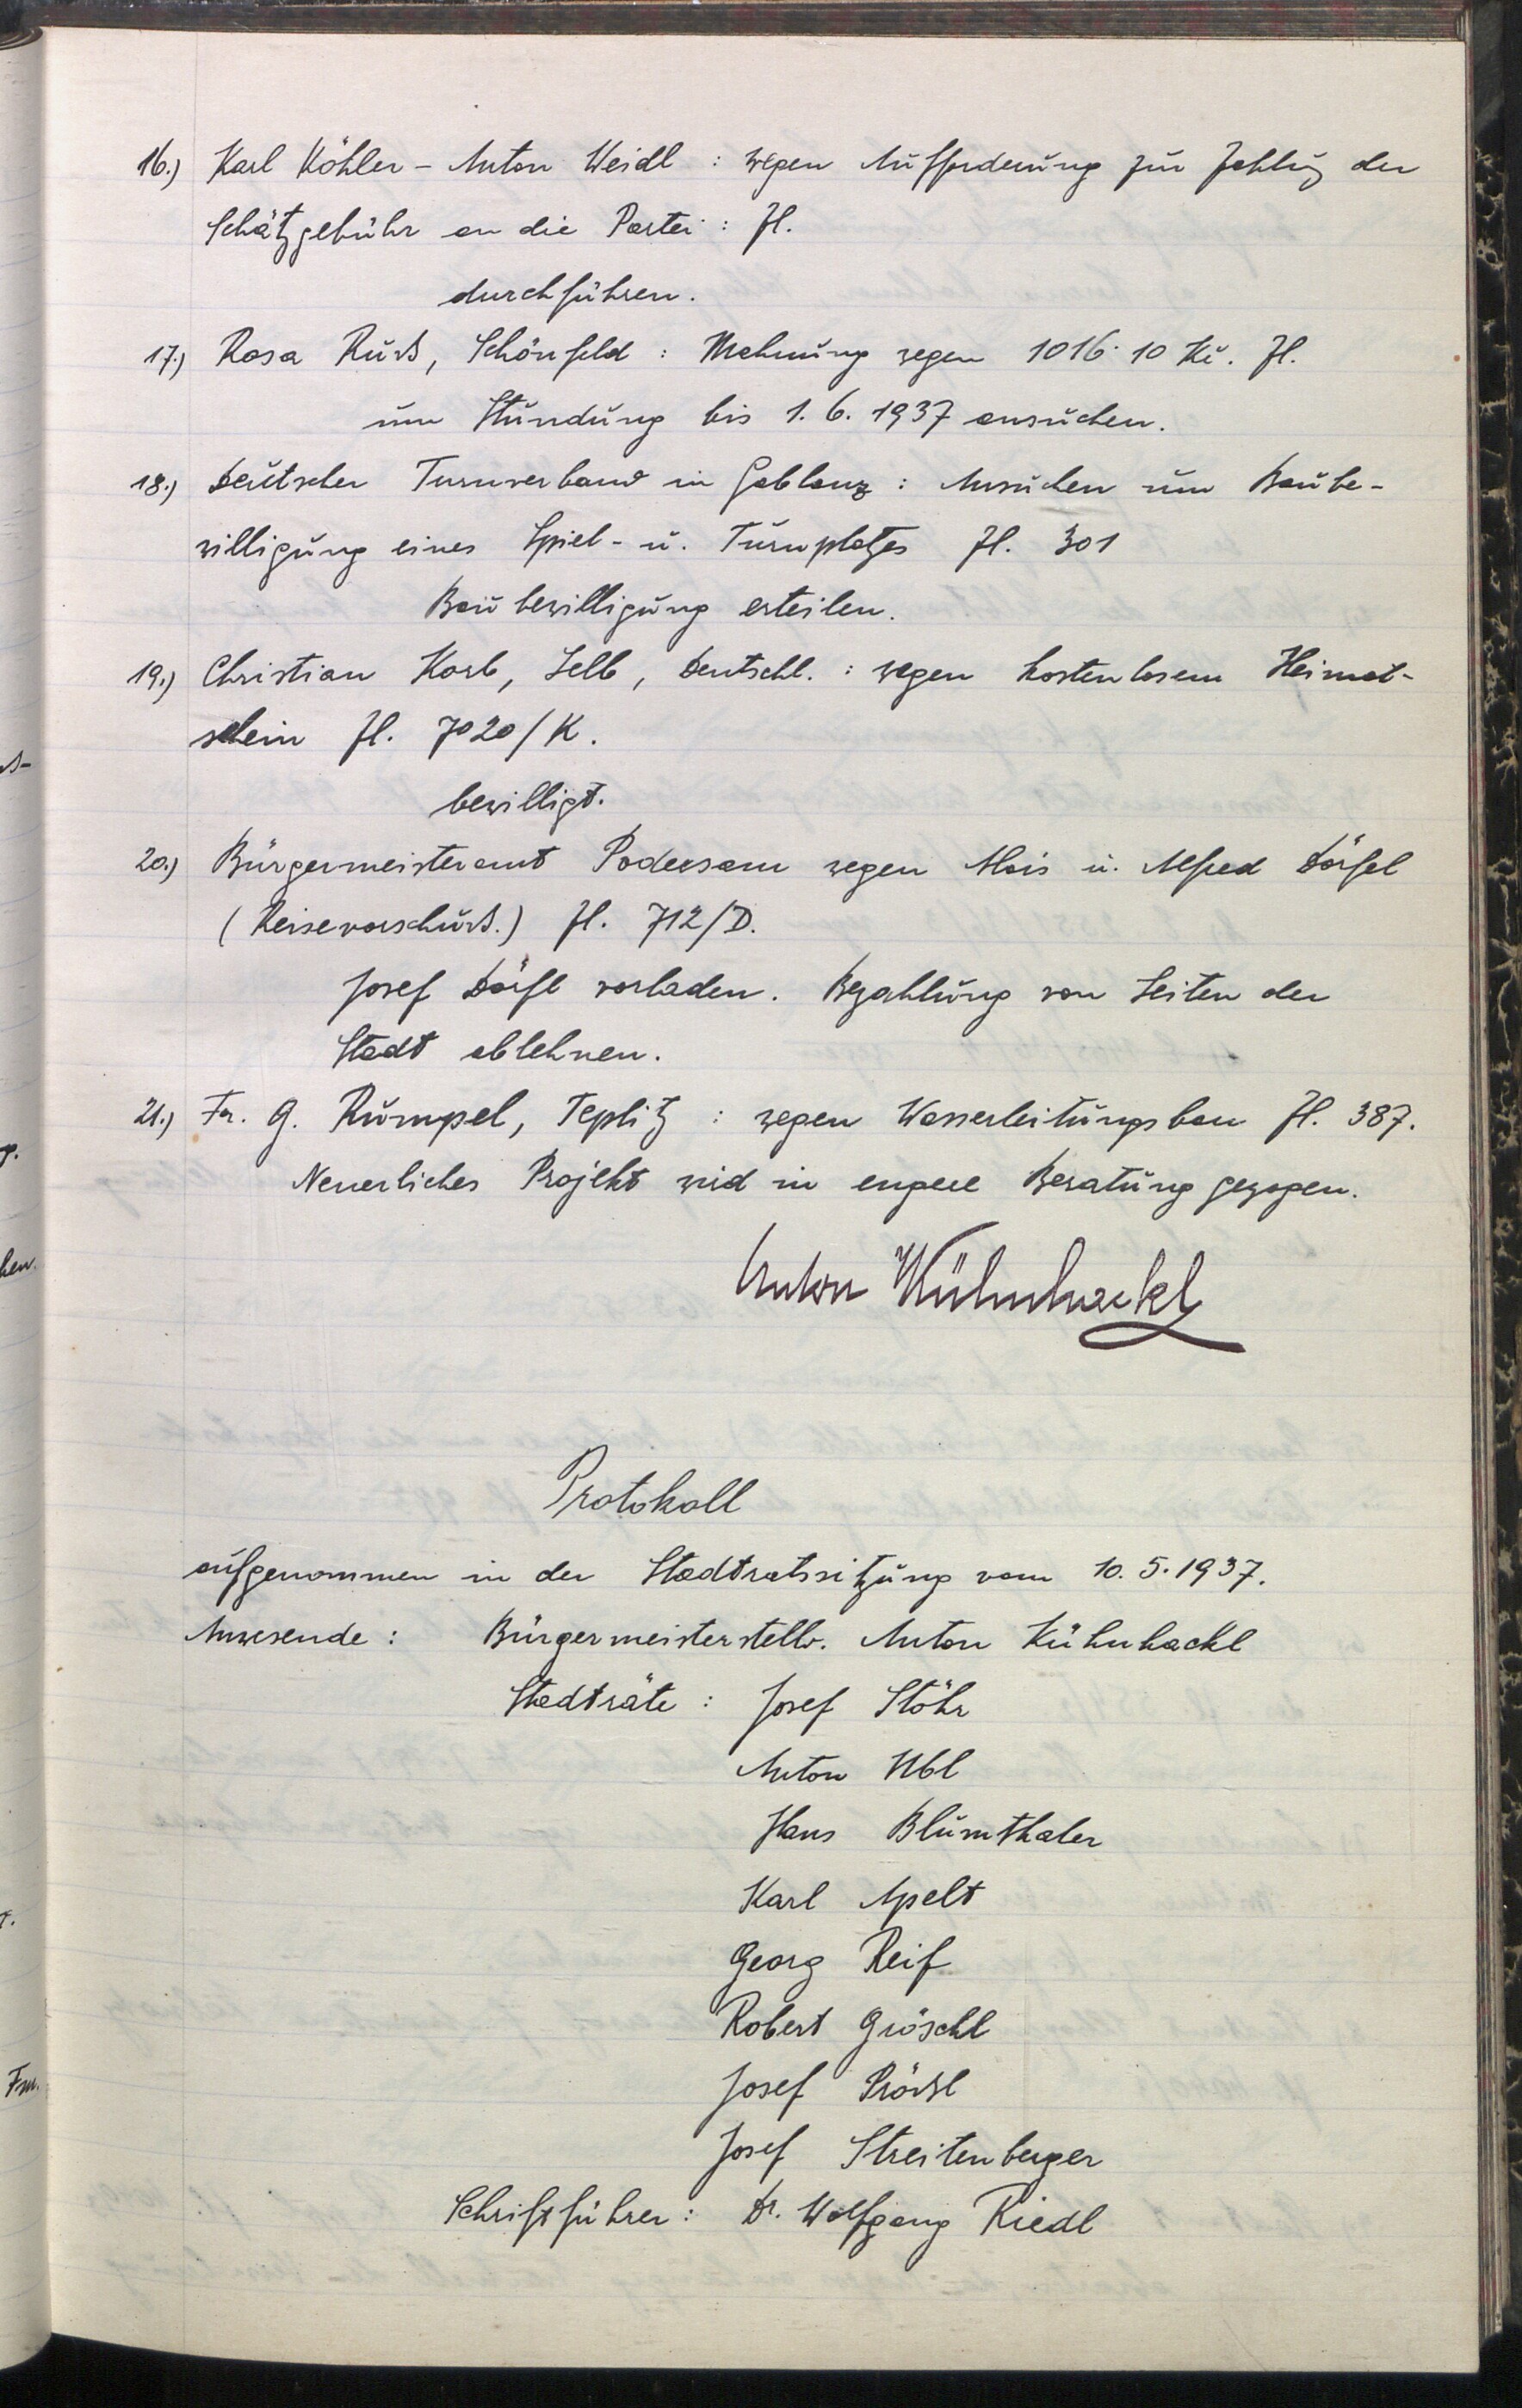 16.) Karl Köhler - Anton Weidl : wegen Aufforderung zur Zahlug der
Schätzgebühr an die Partei : Zl.
durchführen.
17.) Rosa Ruß, Schönfeld : Mahnung wegen 1016·10 Kč. Zl.
um Stundung bis 1. 6. 1937 ansuchen.
18.) Deutscher Turnverband in Gablonz : Ansuchen um Baube-
willigung eines Spiel- u. Turnplatzes Zl. 301
Baubewilligung erteilen.
19.) Christian Korb, Selb, Deutschl. : wegen kostenlosem Heimat-
schein Zl. 7020/K.
bewilligt.
20.) Bürgermeisteramt Podersam wegen Alois u. Alfred Dörfel
(Reisevorschuß.) Zl. 712/D.
Josef Dörfl vorladen. Bezahlung von Seiten der
Stadt ablehnen.
21.) Fa. G. Rumpel, Teplitz : wegen Wasserleitungsbau Zl. 387.
Neuerliches Projekt wird in engere Beratung gezogen.
Anton Kühnhackl
Protokoll
aufgenommen in der Stadtratssitzung vom 10. 5. 1937.
Anwesende : Bürgermeisterstellv. Anton Kühnhackl
Stadträte : Josef Stöhr
Anton Ubl
Hans Blumthaler
Karl Apelt
Georg Reif
Robert Gröschl
Josef Prößl
Josef Streitenberger
Schriftführer : Dr. Wolfgang Riedl